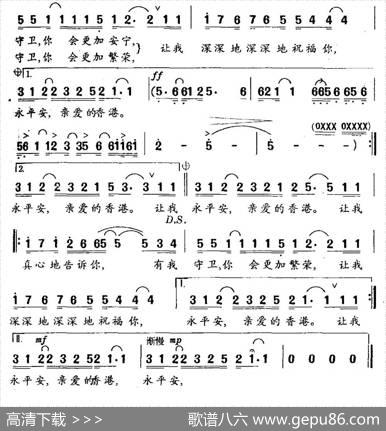 5 5 1 1 1 1 5 1 2· 2 1 1 1 7 6 7 6 5 5 4 4 4
守卫,你 会更加安宁, 让我 深深地深深地祝福你,
守卫,你 会更加繁荣,
1. ff
3 1 2 2 3 2 5 2 1·1 (5·6 6 1 2 5· 6 6 2 1 1 6 6 5 6 6 5 6
永平安, 亲爱的香港。
(0XXX 0XXXX)
5 6 1 1 2 3 3 5 6 6 1 1 6 1 2 - 5 - 5 - - -) :
2.
3 1 2 2 3 2 1 5 3· 3 1 1 3 1 2 2 3 2 5 2 1· 2 1 1
永平安, 亲爱的香港。 让我 永平安, 亲爱的香港。 让我
D.S.
1 7 1 2 6 6 5 5 5 3 4 5 5 1 1 1 1 5 1 2· 2 1 1
真心地告诉你, 有我 守卫,你 会更加繁荣, 让我
1.
1 7 6 7 6 5 5 4 4 4 3 1 2 2 3 2 5 2 1· 1 1 1 :
深深地深深地祝福你, 永平安, 亲爱的香港。 让我
II. mf 渐慢 mp
3 1 2 2 3 2 5 2 1·1 3 1 2 2 3 2 2 5 2 1·1 0 0 0 0
永平安, 亲爱的香港, 永平安,
高清下载 >>> 歌谱八六 www.gepu86.com